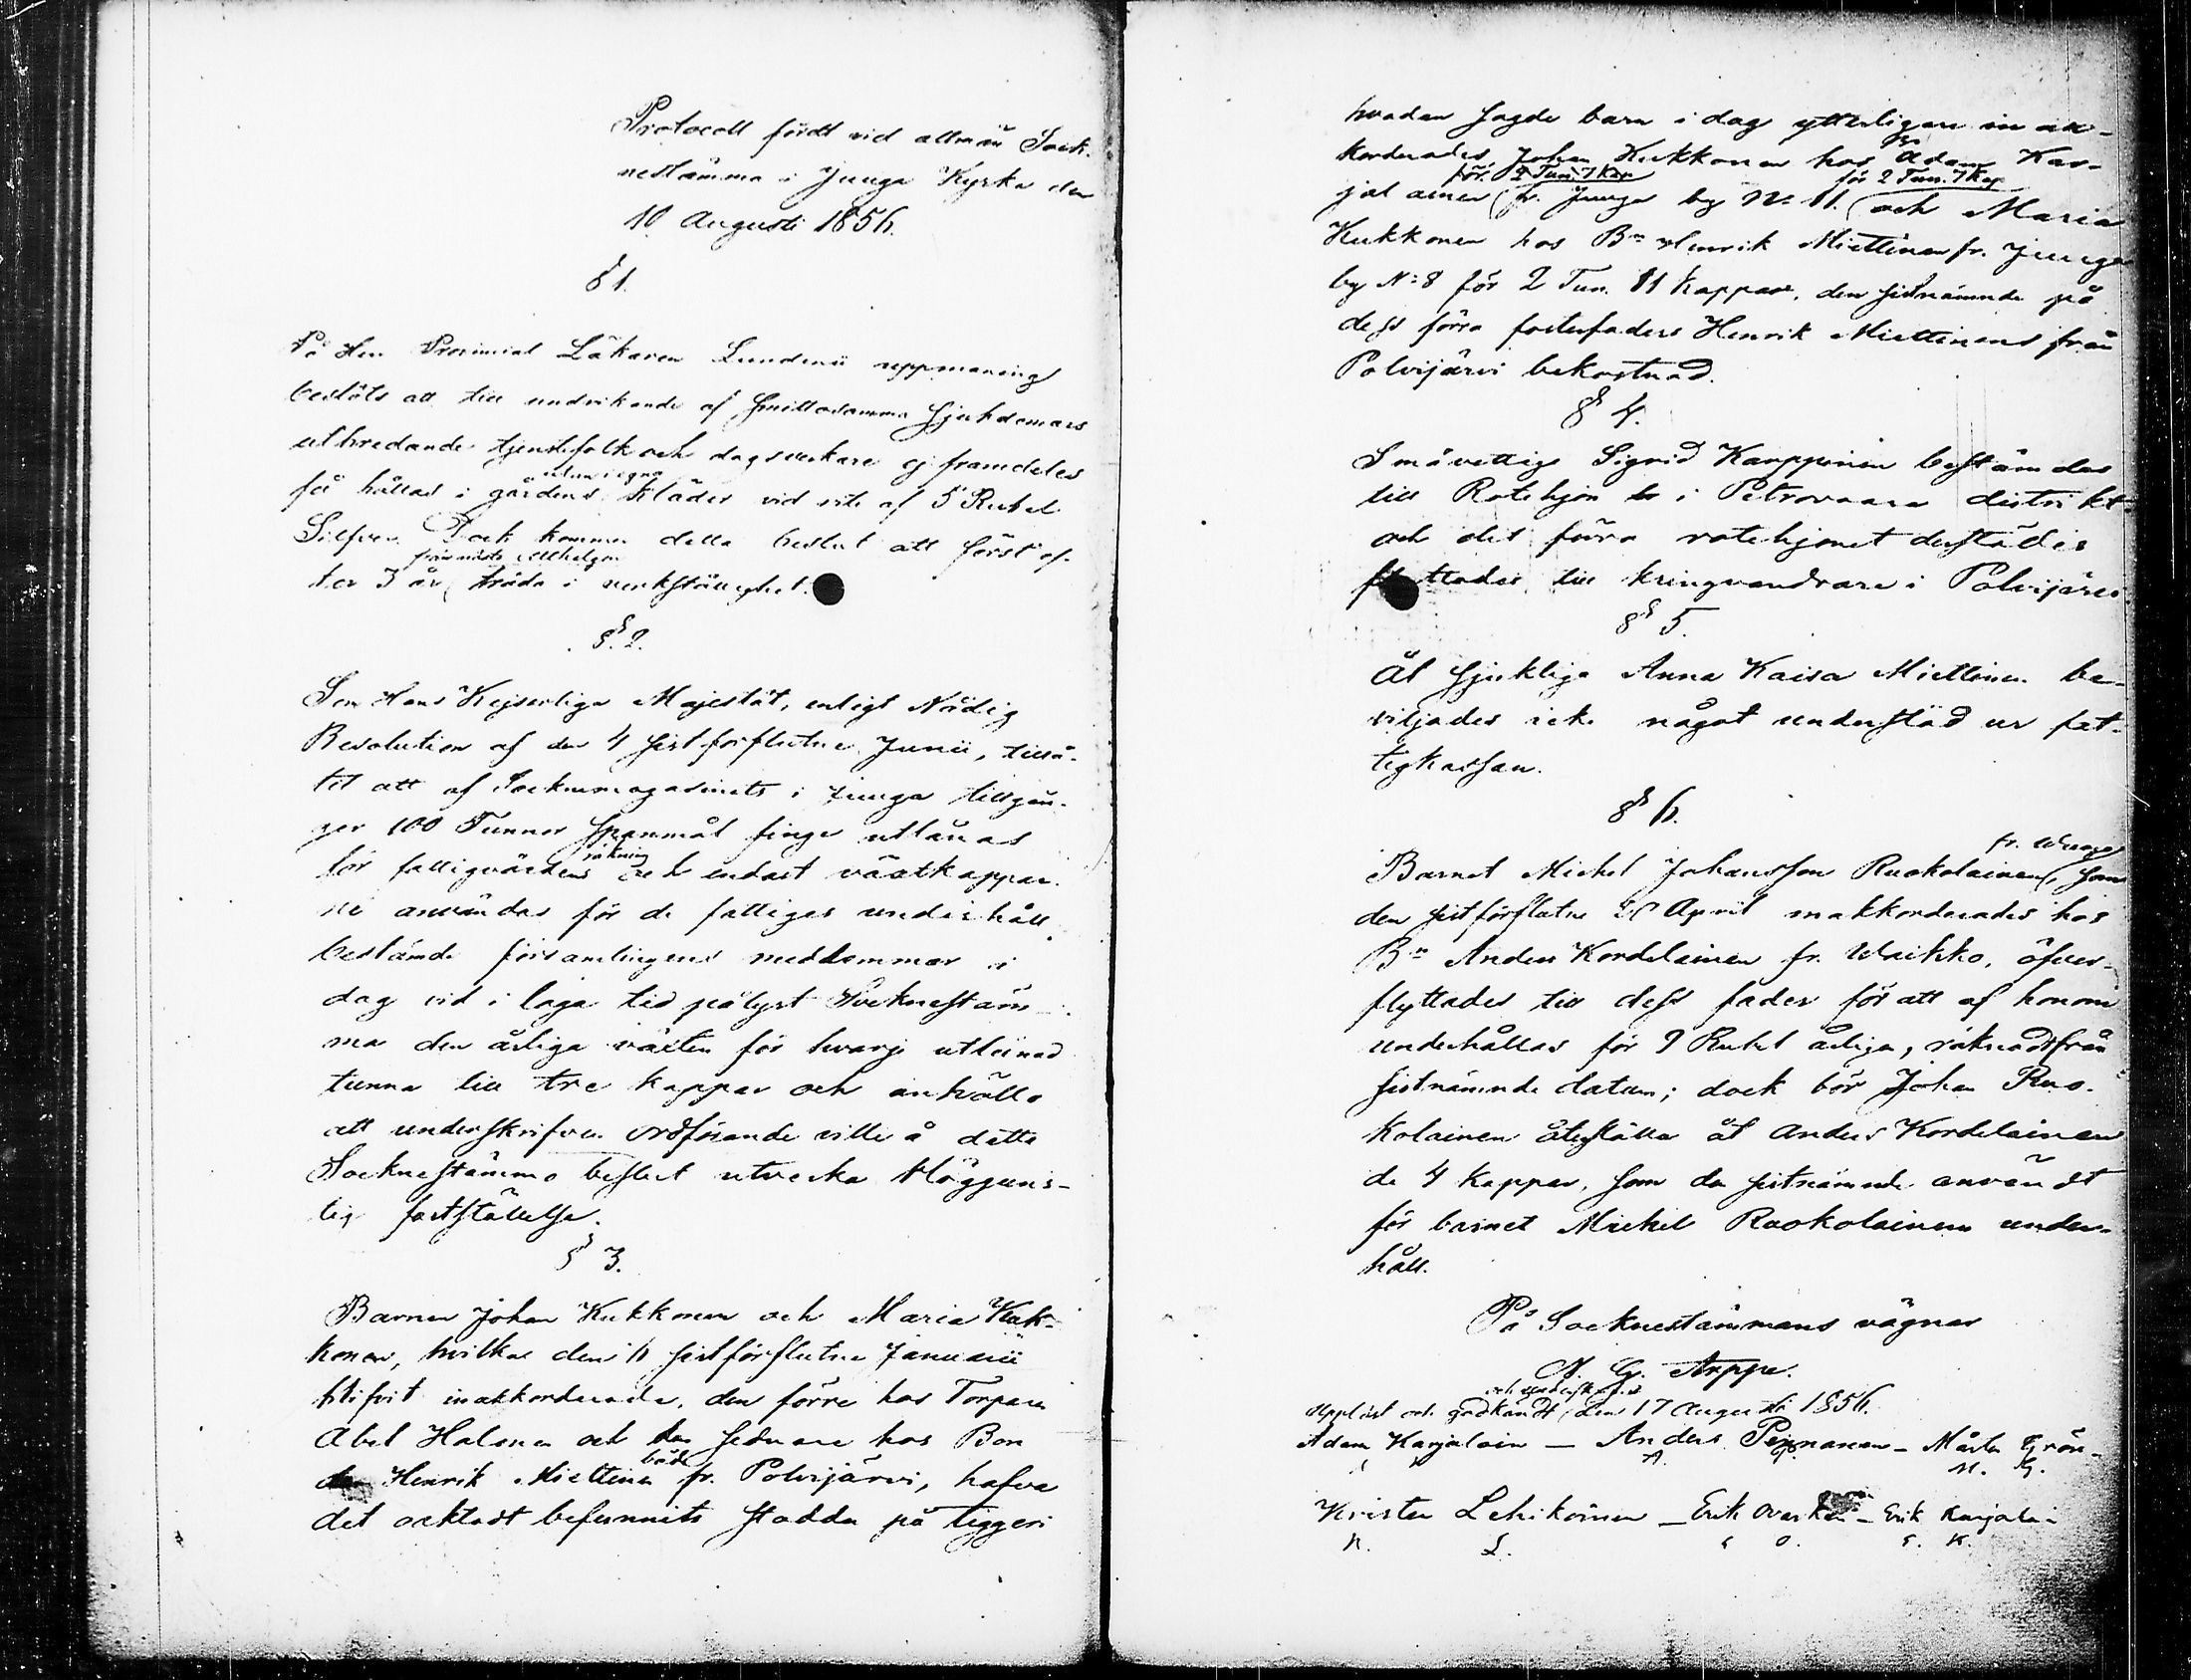 Protocoll fördt vid allmän Sock-
nestämma i Juuga Kyrka den
10 Augusti 1856.
§ 1.
På Herr Provincial Läkaren Lundenii uppmaning
beslöts att till undvikande af smittosamma sjukdomars
utbredande tjenstefolk och dagsverkare ej framdeles
utan i egna
få hållas i gårdens kläder vid vite af 5 Rubel
Silfver. Dock kommer detta beslut att först ef-
från nästa Allhelgon
ter 3 år träda i verkställighet.
§. 2.
Som Hans Kejserliga Majestät, enligt Nådig
Resolution af den 4 sistförflutne Junii, tillå-
tit att af Sockenmagasinets i Juuga tillgån-
gar 100 Tunnor Spanmål finge utlånas
räkning
för fattigvårdens och endast växtkappar-
ne användas för de fattiges underhåll,
bestämde församlingens medlemmar i
dag vid i laga tid pålyst Socknestäm-
ma den årliga växten för hvarje utlånad
tunna till tre kappar och anhöllo
att underskrifven ordförande ville å detta
Socknestämmo beslut utverka Högguns-
lig fastställelse.
§ 3.
Barnen Johan Kukkonen och Maria Kuk-
konen, hvilka den 6 sistförflutne Januarii
blifvit inakkorderade, den förre hos Torparen
Abel Halonen och den sednare hos Bon
både
den Henrik Miettinen fr. Polvijärvi, hafva
det oaktadt befunnits stadda på tiggeri
hvadan sagde barn i dag ytterligare in ak-
korderades, Johan Kukkonen hos Adam Kar-
för 2 Tun. 7 Kap
för 2 Tun. 7 Kap
jalainen fr. Juuga by No 11. och Maria
Kukkonen hos Bn Henrik Miettinen fr. Juuga
by N:8 för 2 Tun. 11 Kappar, den sistnämnde på
dess förra fosterfaders Henrik Miettinens från
Polvijärvi bekostnad.
§ 4.
Småvettige Sigrid Karppinen bestämdes
till Rotehjon i Petrovaara distrikt
och det förra rotehjonet derstädes
flyttades till kringvandrare i Polvijärvi.
§ 5.
Åt sjukliga Anna Kaisa Miettinen be-
viljades icke något understöd ur fat-
tigkassan.
§ 6.
fr. Wuoga
Barnet Michel Johansson Ruokolainen, som
den sistförflutne April inakkorderades hos
Bn Anders Kordelainen fr. Waikko, öfver-
flyttades till dess fader för att af honom
underhållas för 9 Rubel årligen, räknadt från
sistnämnde datum; dock bör Johan Ruo-
kolainen återställa åt Anders Kordelainen
de 4 kappar, som den sistnämnde användt
för barnet Michel Ruokolainens under-
håll.
På Socknestämmans vägnar
A. G. Arppe.
och underskrifvet
Uppläst och godkändt den 17 Augusti 1856.
Adam Karjalain — Anders Piennanen — Mårten Grön-
A. M. G.
Krister Lehikoinen — Erik Ovaskai — Erik Karjalai
K. L. E O. E. K.